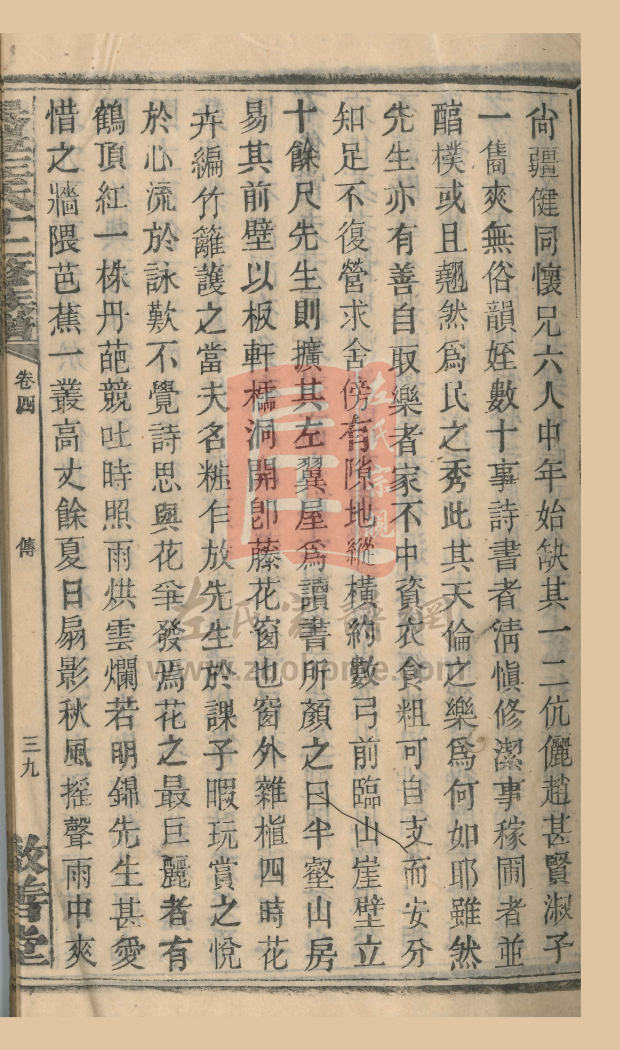 尙疆健同懷兄六人中年始缺其一二伉儷趙甚賢淑子
一雋爽無俗韻姪數十事詩書者淸愼修潔事稼圃者並
醕樸或且翹然爲民之秀此其天倫之樂爲何如耶雖然
先生亦有善自取樂者家不中資衣食粗可自支而安分
知足不復營求舍傍有隙地縱橫約數弓前臨山崖壁立
十餘尺先生則擴其左翼屋爲讀書所顏之曰半壑山房
易其前壁以板軒櫺洞開卽藤花窗也窗外雜植四時花
卉編竹籬護之當夫名粧乍放先生於課子暇玩賞之悅
於心流於詠歎不覺詩思與花爭發焉花之最巨麗者有
鶴頂紅一株丹葩競吐時照雨烘雲爛若明錦先生甚愛
惜之牆隈芭蕉一叢高丈餘夏日扇影秋風摇聲雨中爽
卷四
傳
三九
敦善堂
左氏宗親
左氏家譜網
www.zuohome.com